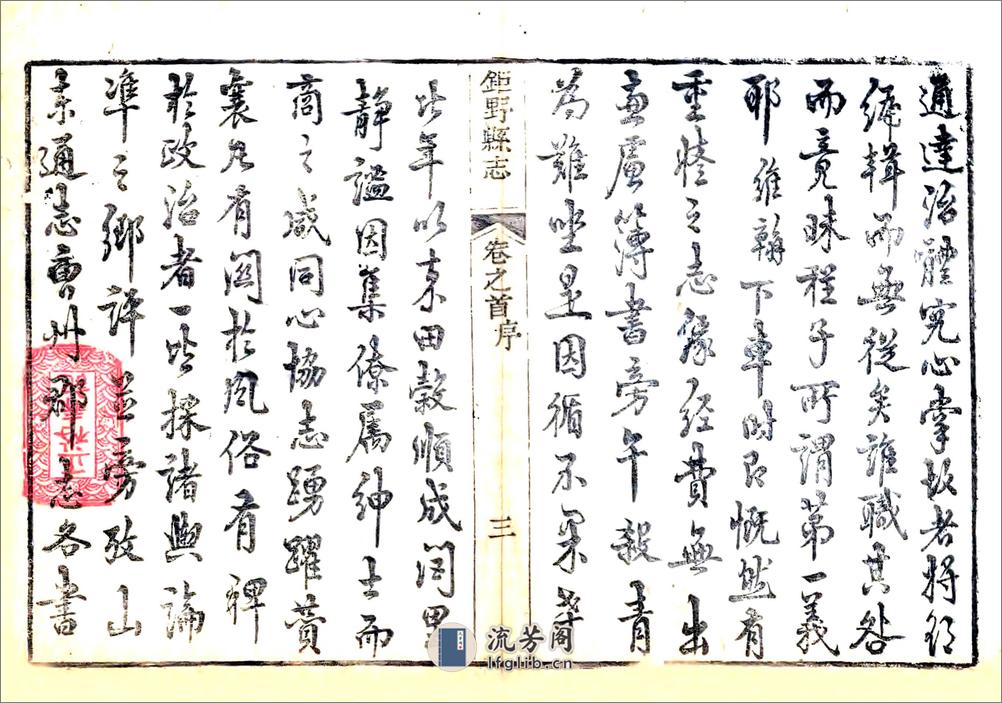 通達治體究心掌故者將欲
編輯而無從矣誰職其咎
而竟昧程子所謂第一義
耶維翰下車時即慨然有
重修之志緣經費無出
兼慮簿書旁午殺青
為難坐是因循不果幸
鉅野縣志 卷之首序 三
比年以來田穀順成閭里
靜謐因集僚屬紳士而
商之咸同心協志踴躍贊
襄凡有關於風俗有裨
於政治者一採諸輿論
準之鄉評並旁攷山
東通志曹州郡志各書
流芳阁
lfglib.cn